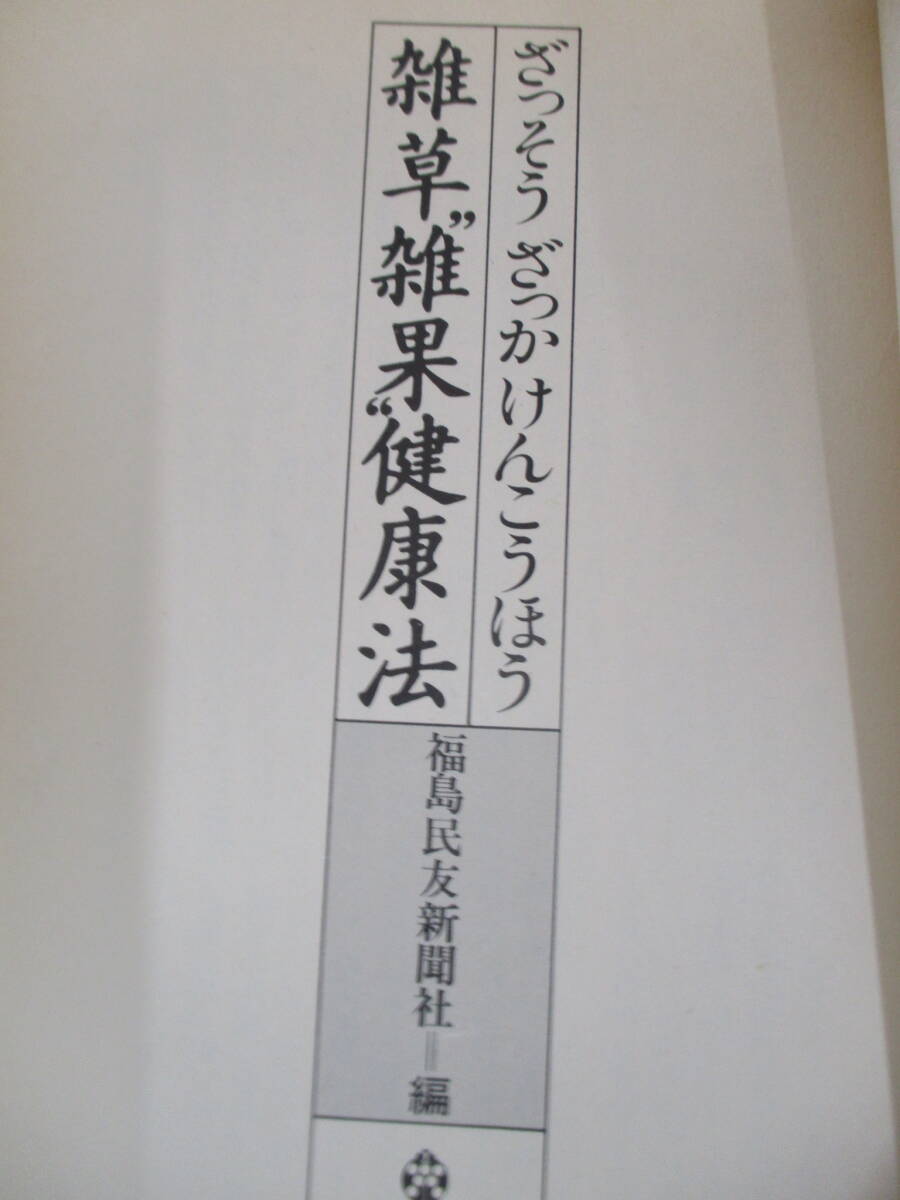 ざっそう ざっか けんこうほう
雑草”雑果“健康法
福島民友新聞社＝編